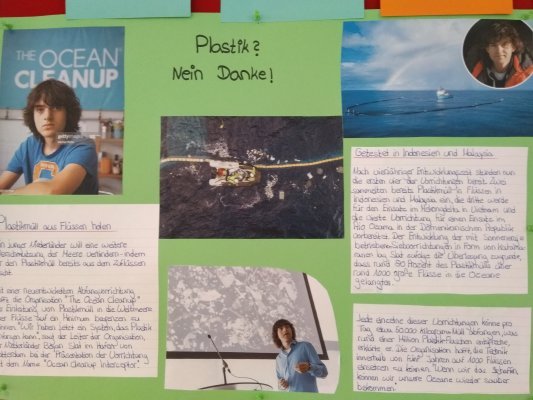 THE OCEAN
CLEANUP
gettyimages
Plastik?
Nein Danke!
Plastikmüll aus Flüssen holen
junger Niederländer will eine weitere
Verschmutzung der Meere verhindern - indem
er den Plastikmüll bereits aus den Zuflüssen
einer neuentwickelten Abfangvorrichtung
die Organisation "The Ocean Cleanup"
Einleitung von Plastikmüll in die Weltmeere
Flüsse auf ein Minimum begrenzen zu
können. "Wir haben jetzt ein System, das Plastik
kann", sagt der Leiter der Organisation,
der Niederländer Boyan Slat im Hafen von
Rotterdam bei der Präsentation der Vorrichtung
mit dem Name "Ocean Cleanup Interceptor".
Getestet in Indonesien und Malaysia
Nach vierjähriger Entwicklungszeit stünden nun
die ersten vier der Vorrichtungen bereit. Zwei
sammelten bereits Plastikmüll in Flüssen in
Indonesien und Malaysia ein, die dritte werde
für den Einsatz im Mekongdelta in Vietnam und
die vierte Vorrichtung für einen Einsatz im
Rio Ozama in der Dominikanischen Republik
vorbereitet. Der Entwicklung der mit Sonnenenergie
betriebenen in Form von
lag Slat zufolge die Überlegung zugrunde,
dass rund 80 Prozent des Plastikmülls über
rund 1000 große Flüsse in die Ozeane
gelangten.
Jede einzelne dieser Vorrichtungen könne pro
Tag etwa 50000 Kilogramm Müll abfangen, was
rund einer Million Plastik-Flaschen entspreche,
erklärte er. Die Organisation hoffe, die Technik
innerhalb von fünf Jahren auf 1000 Flüssen
einsetzen zu können. Wenn wir das schaffen,
können wir unsere Ozeane wieder sauber
bekommen.